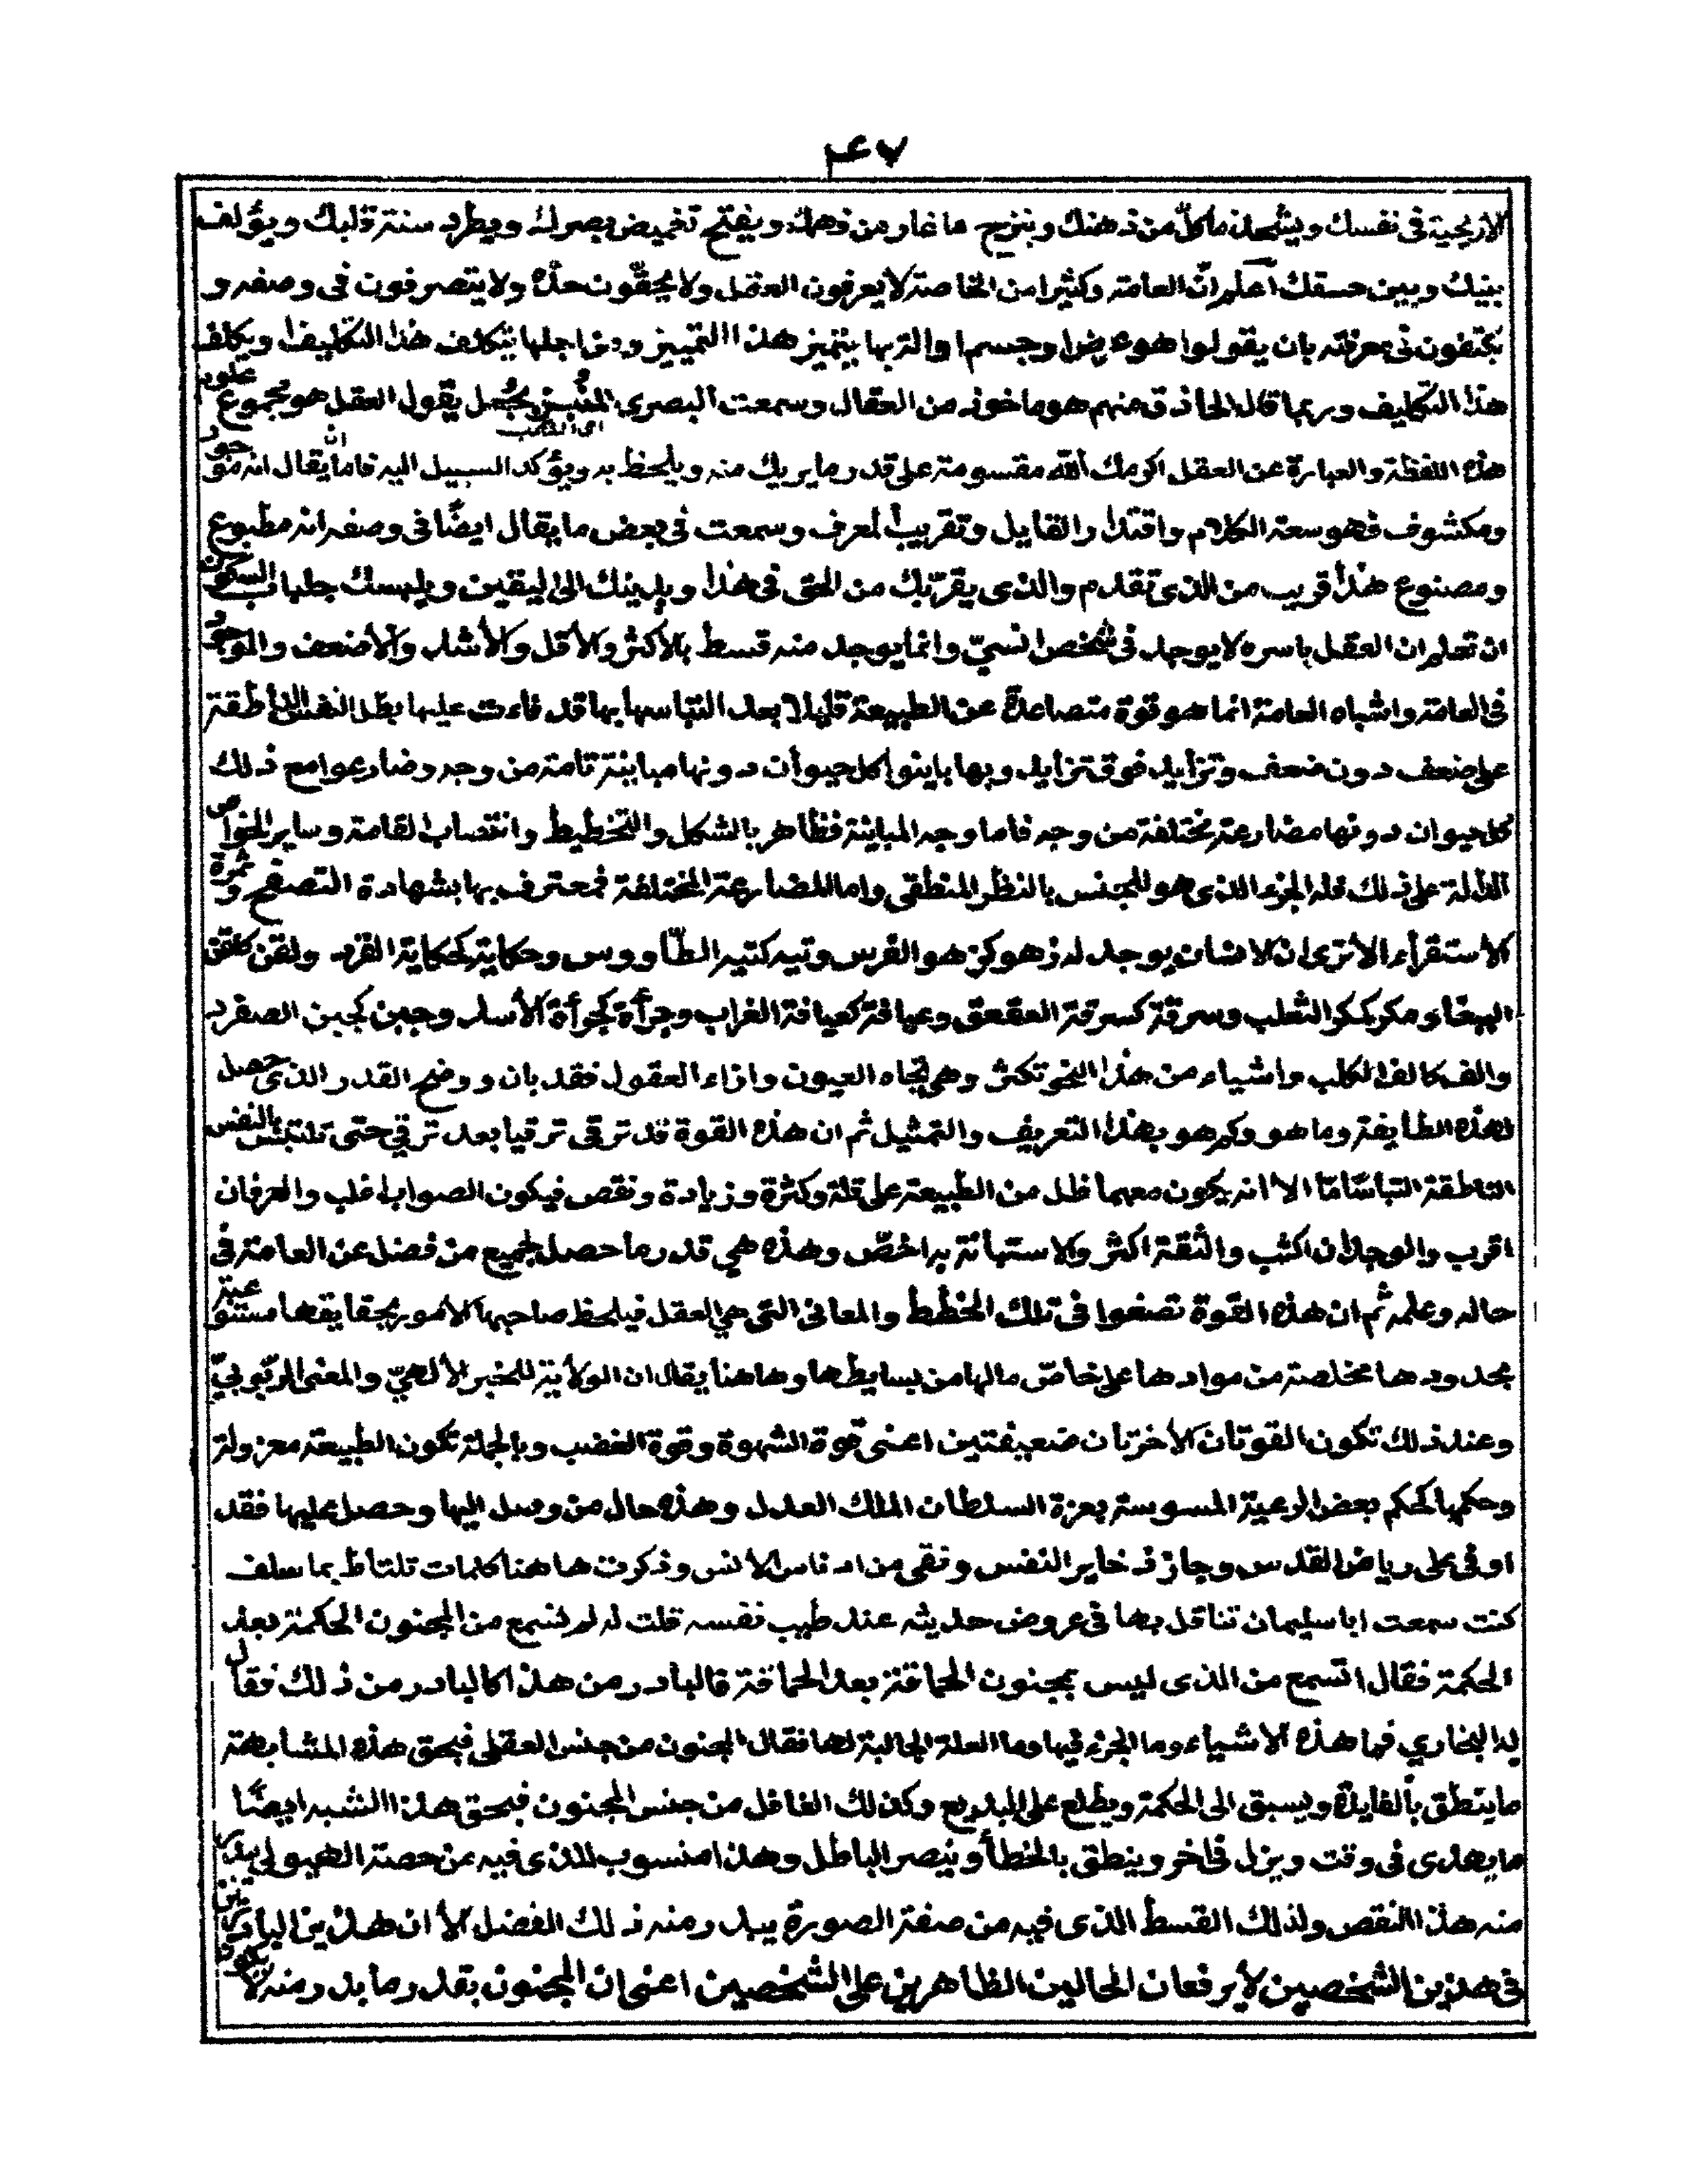 ٤٧
الاريحية في نفسك ويشحذ ما كلّ من ذهنك وينزح ما غار من فهمك ويفتح تغميض بصرك ويطرد سنة قلبك ويؤلف
بينك وبين حسك اعلم انّ العامة وكثيرا من الخاصة لا يعرفون العقل ولا يحقّون حدّه ولا يتصرفون في وصفه و
يكتفون في معرفته بان يقولوا هو عرض او جسم او الة بها يتميز هذا التمييز ومن اجلها يتكلف هذا التكليف ويكلف
هذا التكليف وربما قال الحاذق منهم هو ماخوذ من العقال وسمعت البصري يقول العقل هو مجموع علوم
هذه اللفظة والعبارة عن العقل اكرمك الله مقسومة على قدر ما يريك منه ويلحظ به ويؤكد السبيل اليه فاما ان يقال انه موجود
ومكشوف فهو سعة الكلام واقتدار القايل وتقريب المعرف وسمعت في بعض ما يقال ايضًا في وصفه انه مطبوع
ومصنوع هذا قريب من الذى تقدم والذى يقرّبك من الحق في هذا ويدينك الى اليقين ويلبسك جلباب السكون
ان تعلم ان العقل باسره لا يوجد في شخص انسيّ وانما يوجد منه قسط بالاكثر والاقل والأشد والأضعف والموجود
في العامة واشباه العامة انما هو قوة متصاعدة عن الطبيعة قليلا بعد التباسها بها قد فاءت عليها بظل النفس الناطقة
على ضعف دون ضعف وتزايد فوق تزايد وبها باينوا كل حيوان دونها مباينة تامة من وجه وضارعوا مع ذلك
كل حيوان دونها مضارعة مختلفة من وجه فاما وجه المباينة فظاهر بالشكل والتخطيط وانتصاب القامة وساير الخواص
الدالة على ذلك فله الجزء الذى هو للجنس بالنظر المنطقى واما المضارعة المختلفة فمعترف بها بشهادة التصفح و ثمرة
الأستقراء الأ ترى ان الانسان يوجد له زهو كزهو الفرس وتيه كتيه الطاووس وحكاية كحكاية القرد ولقن كلقن
الببغاء ومكر كمكر الثعلب وسرقة كسرقة العقعق وعيافة كعيافة الغراب وجرأة كجرأة الأسد وجبن كجبن الصفرد
والف كالف الكلب واشياء من هذا النحو تكثر وهي تجاه العيون وازاء العقول فقد بان ووضح القدر الذى حصل
لهذه الطايفة وما هو وكم هو بهذا التعريف والتمثيل ثم ان هذه القوة قد ترقى ترقيا بعد ترقي حتى تلتبس بالنفس
الناطقة التباسًا مّا الا انه يكون معهما ظل من الطبيعة على قلة وكثرة وزيادة ونقص فيكون الصواب اغلب والعرفان
اقرب والوجدان اكثب والثقة اكثر والاستبانة به اخصّ وهذه هي قدر ما حصل لجميع من فضل عن العامة في
حاله وعلمه ثم ان هذه القوة تصغوا في تلك الخطط والمعانى التى هي العقل فيلحظ صاحبها الأمور بحقايقها مستوعبة
بحدودها مخلصة من موادها على خاصّ مالها من بسايطها وهاهنا يقال ان الولأية للخير الألهيّ والمعنى الربّوبيّ
وعند ذلك تكون القوتان الأخرتان ضعيفتين اعنى قوة الشهوة وقوة الغضب وبالجملة تكون الطبيعة معزولة
وحكمها كحكم بعض الرعية المسوسة بعزة السلطان الملك العدل وهذه حال من وصل اليها وحصل عليها فقد
اوفى على رياض القدس وحاز ذخاير النفس ونقى من ادناس الانس وذكرت هاهنا كلمات تلتاظ بما سلف
كنت سمعت ابا سليمان تناقل بها في عروض حديثه عند طيب نفسه قلت له لم نسمع من المجنون الحكمة بعد
الحكمة فقال اتسمع من الذى ليس بمجنون الحماقة بعد الحماقة فالبادر من هذا كالبادر من ذلك فقال
له البخاري فما هذه ألاشياء وما الجزء فيها وما العلة الجالبة لها فقال المجنون من جنس العقل فبحق هذه المشابهة
ما ينطق بالفايدة ويسبق الى الحكمة ويطلع على البديع وكذلك العاقل من جنس المجنون فبحق هذا الشبه ايضًا
ما يهذى في وقت ويزل في اخر وينطق بالخطأ وينصر الباطل وهذا منسوب للذى فيه من حصة الهيولى
منه هذا النقص ولذلك القسط الذى فيه من صفة الصورة يبدر منه ذلك الفضل الأ ان هذين البادرين
في هذين الشخصين لأ يرفعان الحالين الظاهرين على الشخصين اعنى ان المجنون بقدر ما بدر منه لا يكون